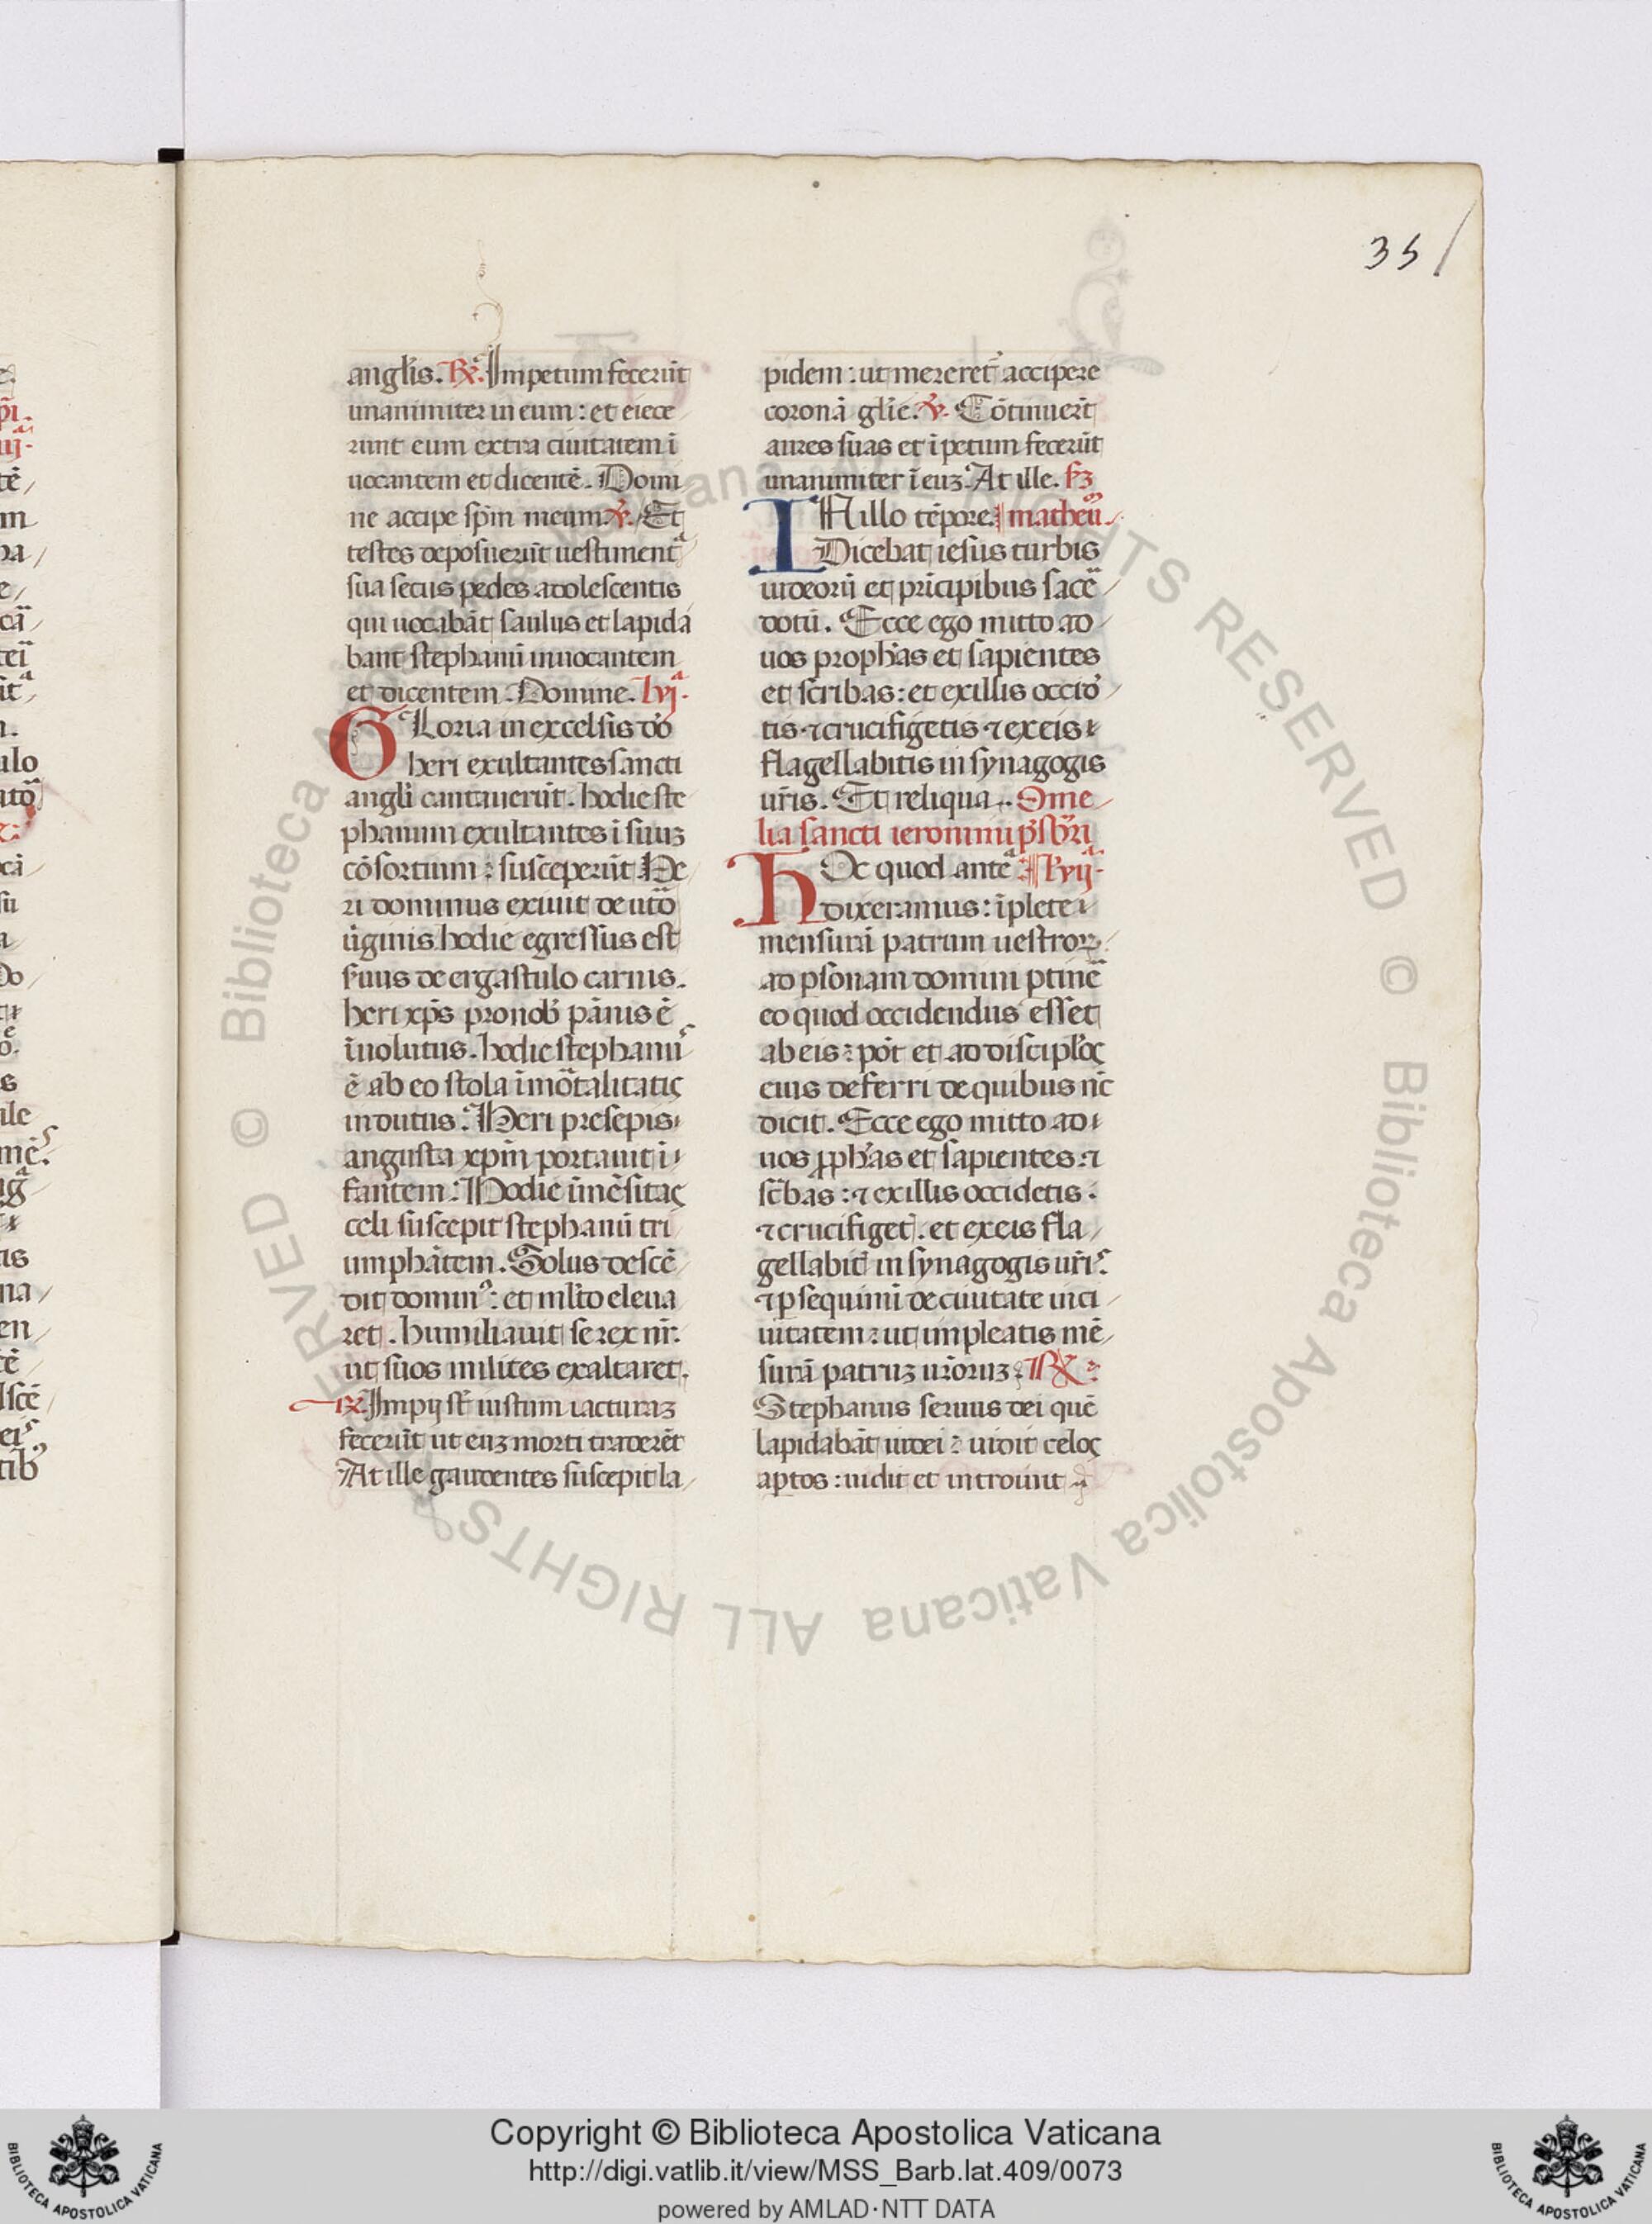 35
angl̃is. R̃. Impetum fecerũt
unanimiter in eum : et eiece
runt eum extra ciuitatem ĩ
uocantem et dicentẽ. Domi
ne accipe sp̃m meum. V̓. Et
testes deposuerũt uestimentᵃ
sua secus pedes adolescentis
qui uocabãt saulus et lapida
bant stephanũ inuocantem
et dicentem. Domine.
GLoria in excelsis dõ
heri exultantes sancti
angl̃i cantauerũt. hodie ste
phanum exultantes ĩ suuꝫ
cõsortium : susceperũt He
ri dominus exiuit de utõ
uiginis hodie egressus est
suus de ergastulo carnis.
heri xp̃s pro nob̃ pãnis ẽ
ĩuolutus. hodie stephanũ
ẽ ab eo stola ĩmõtalitatis
indutus. Heri presepis
angusta xp̃m portauit ĩ
fantem. Hodie ĩmẽsitas
celi suscepit stephanũ tri
umphãtem. Solus descẽ
dit dominꝰ : et ml̃to eleua
ret. humiliauit se rex nr̃.
ut suos milites exaltaret.
R̃. Impij sr̃ iustum iacturaꝫ
fecerũt ut euꝫ morti traderẽt
At ille gaudentes suscepit la
pidem : ut mereret̃ accipere
coronã gl̃ie. V̓. Cõtinuerũt
aures suas et ĩpetum fecerũt
unanimiter ĩ euꝫ. At ille.
IN illo tẽpore. matheũ.
Dicebat iesus turbis
iudeorũ et pricipibus sacẽ
dotũ. Ecce ego mitto ad
uos proph̃as et sapientes
et scribas : et ex illis occid̓
tis. ⁊ crucifigetis. ⁊ ex eis
flagellabitis in synagogis
ur̃is. Et reliqua. Ome
lia sancti ieronimi p̃sb̃ri
HOc quod antẽ
dixeramus : ĩplete
mensurã patrum uestroꝝ
ad ꝑsonam domini ꝑtinẽ
eo quod occidendus esset
ab eis : põt et ad discipl̃os
eius deferri de quibus nc̃
dicit. Ecce ego mitto ad
uos ꝓph̃as et sapientes. ⁊
scb̃as : ⁊ ex illis occidetis.
⁊ crucifiget̃. et ex eis fla
gellabit̃ in synagogis ur̃iˢ.
⁊ ꝑsequimĩ de ciuitate in ci
uitatem : ut impleatis mẽ
surã patruꝫ ur̃oruꝫ. R̃.
Stephanus seruus dei quẽ
lapidabãt iudei : uidit celos
aꝑtos : uidit et introiuit
Copyright © Biblioteca Apostolica Vaticana
http://digi.vatlib.it/view/MSS_Barb.lat.409/0073
powered by AMLAD·NTT DATA